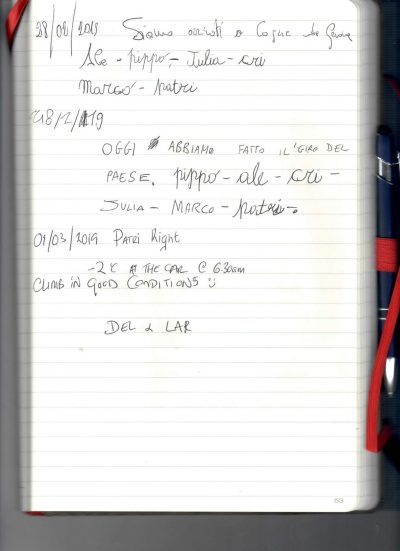 28/02/2019 Siamo arrivati a Cogne da Genova
Ale - pippo - Julia - cri
Marco - patri
28/2/19
OGGI ABBIAMO FATTO IL GIRO DEL
PAESE. pippo - ale - cri -
JULIA - MARCO - patri -
01/03/2019 PATRI Right
-2°C AT THE CAR @ 6.30am
CLIMB iN GOOD CONDITIONS
DEL & LAR